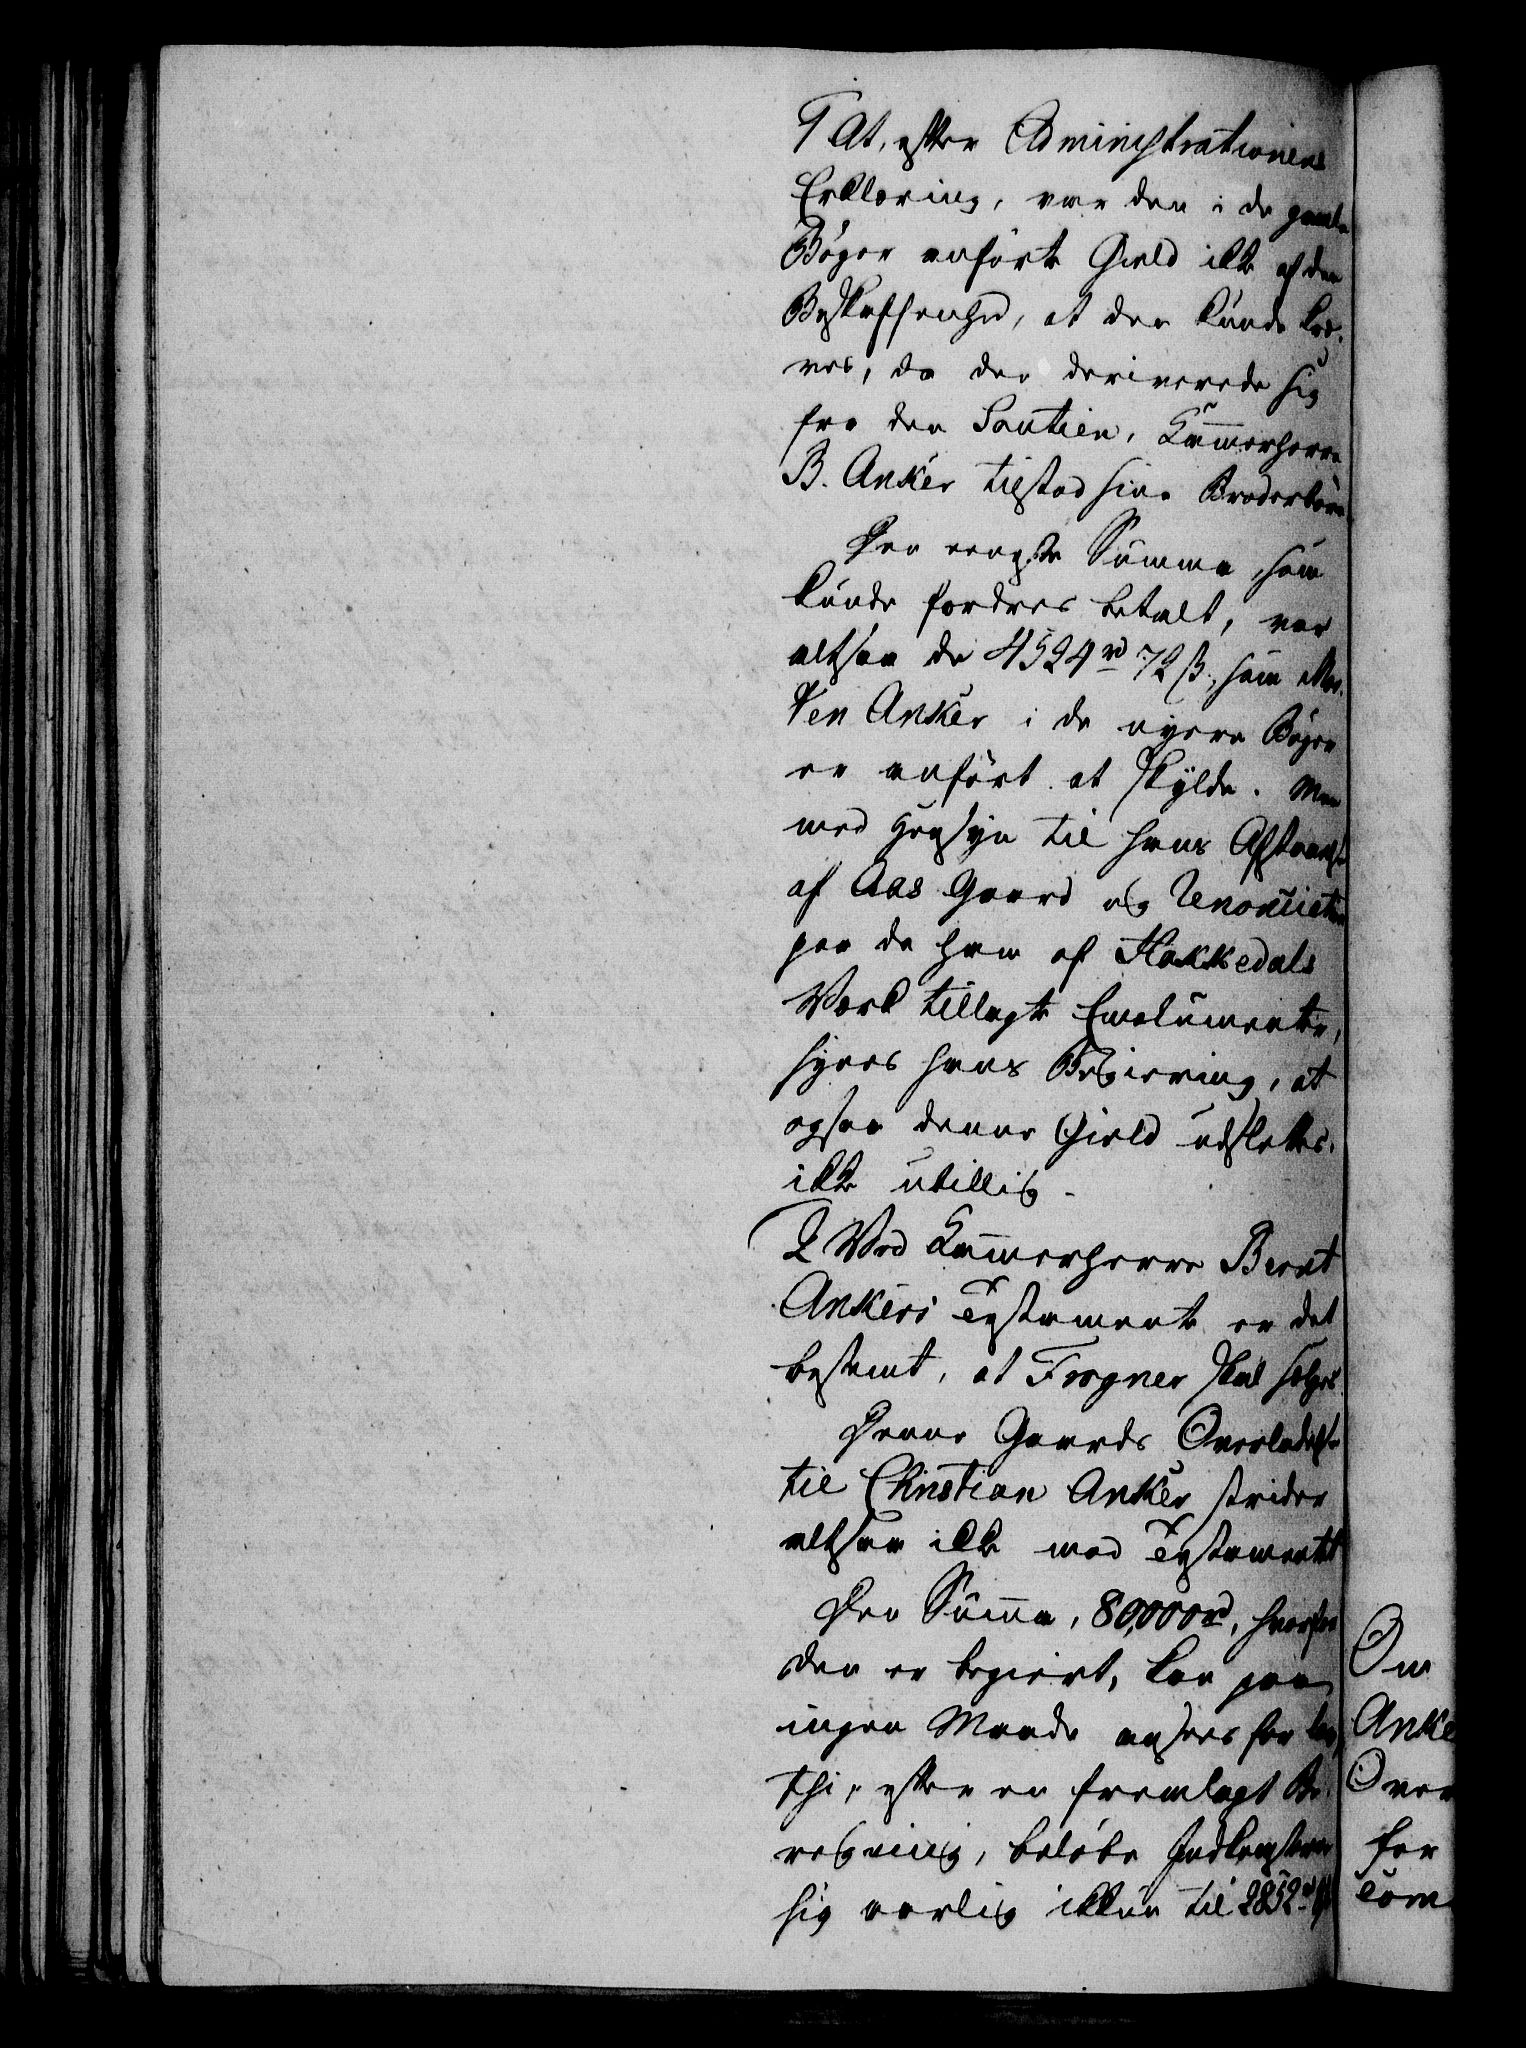 1 At, efter Administrationens
Erklæring, var den i de gamle
Bøger anførte Gield ikke af den
Beskaffenhed, at den kunde kræ-
ves, da den deriverede sig
fra den Soutien, Kammerherre
B. Anker tilstod sine Broderbørn
Den eeneste Summa, som
kunde fordres betalt, var
altsaa de 4524 rd 72 ß, som
Anker i de nyere Bøger
er anført at skylde. Men
med Hensyn til hans Afstaaelse
af Aas Gaard og Renonciation
paa de ham af Hakkedals
Værk tillagte Emolumenter,
synes hans Begiering, at
ogsaa denne Gield udslettes,
ikke ubillig.
2 Ved Kammerherre Bernt
Ankers Testamente er det
bestemt, at Frogner skal sælges
Denne Gaards Overladelse
til Christian Anker strider
altsaa ikke mod Testamentet
Den Summa, 80,000 rd, hvorfor
den er begiert, kan paa
ingen Maade ansees for lav,
thi, efter en fremlagt Be-
regning, beløbe Indkomsterne
sig aarlig ikkun til 2852 rd
Om
Anke
Over
for
Com